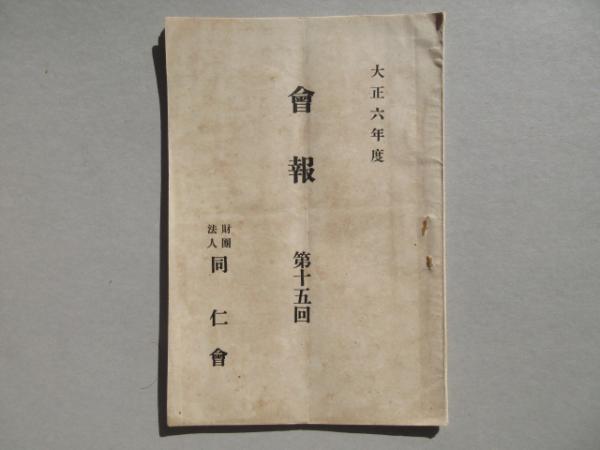 大正六年度
會報 第十五回
財團
法人
同仁會